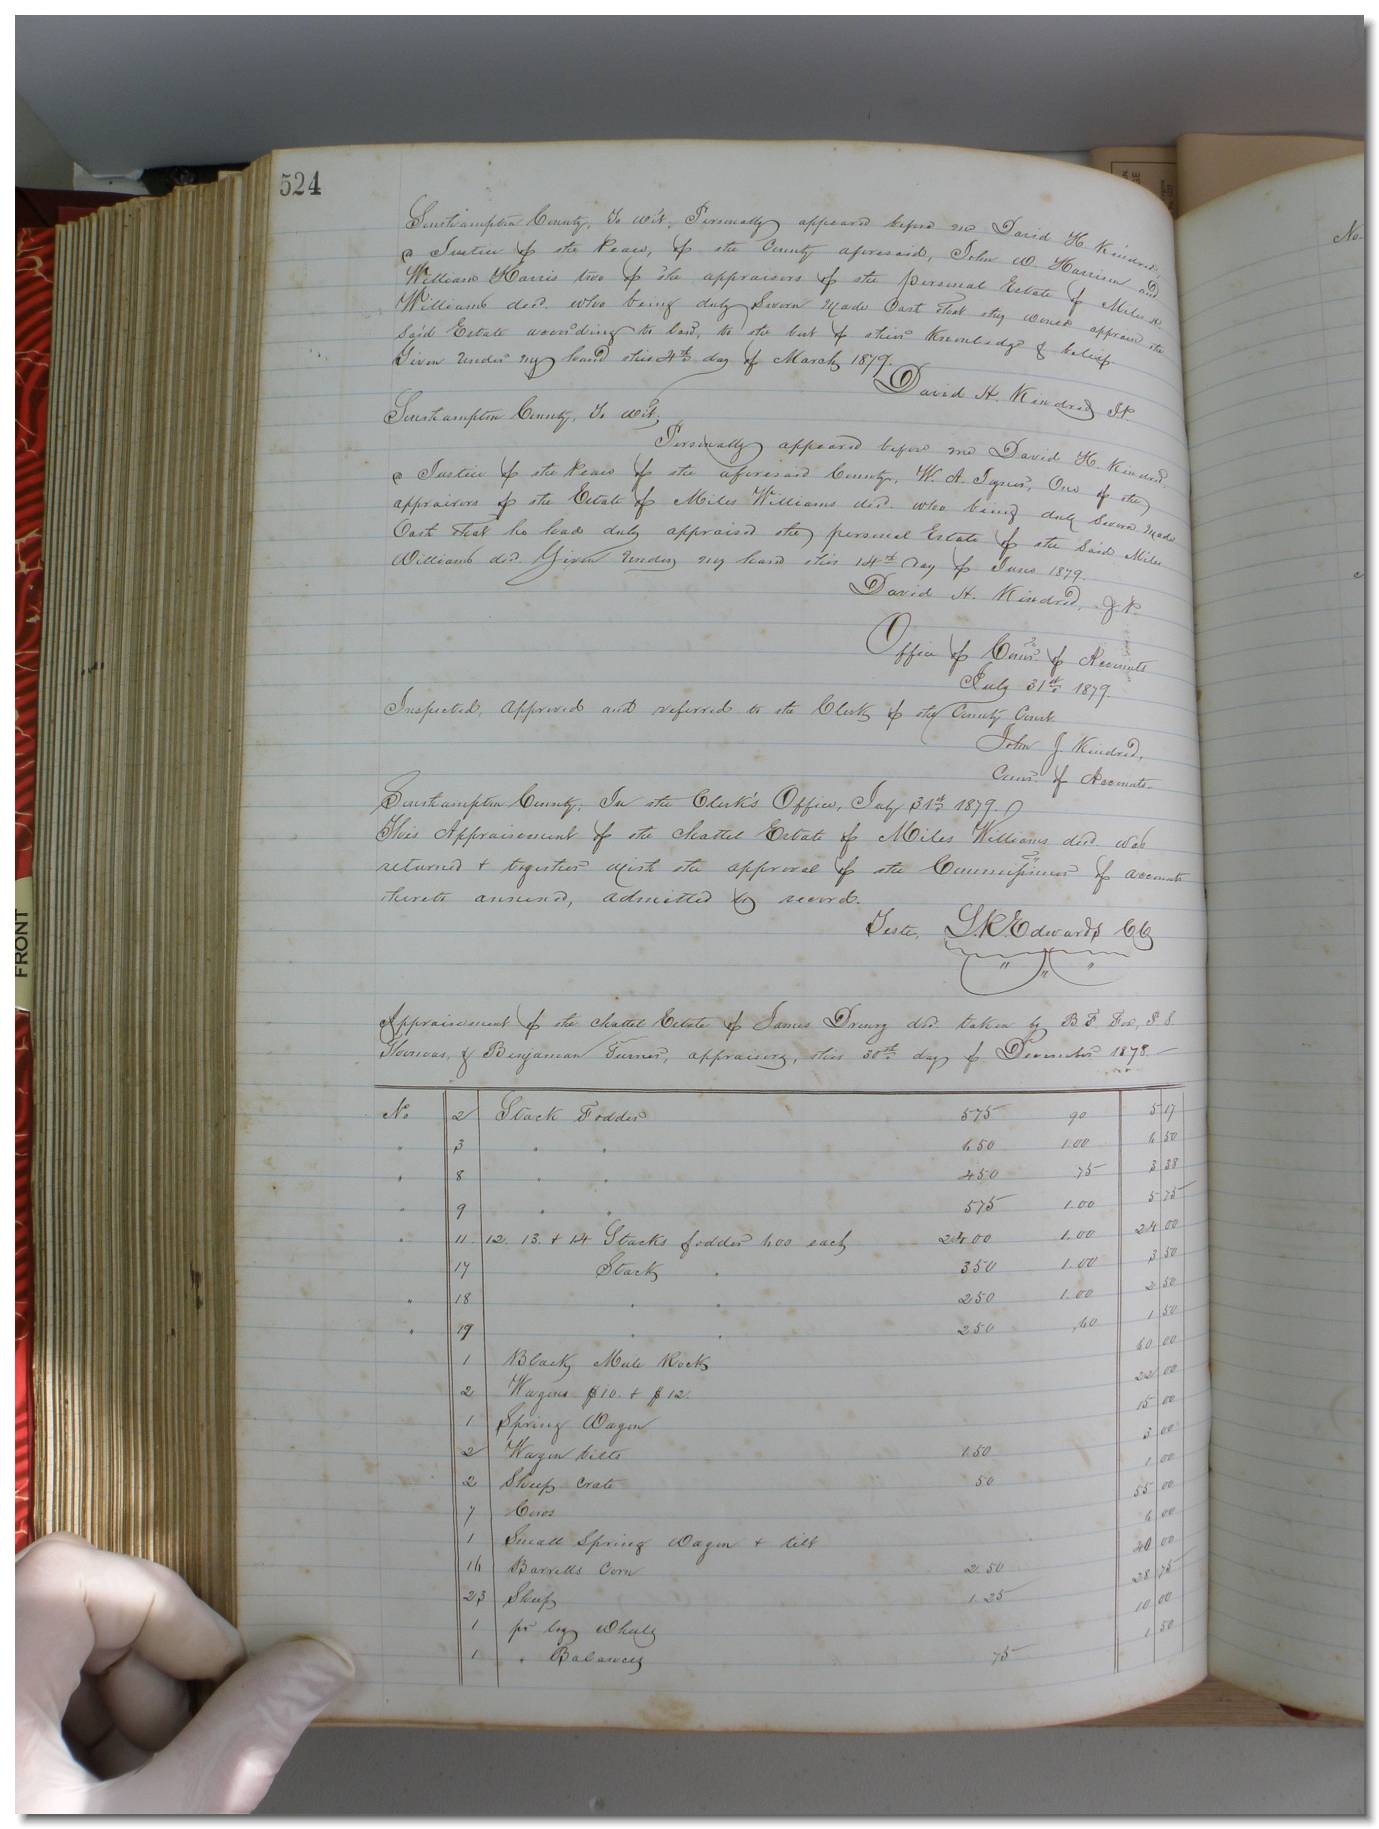 524
Southampton County, To wit, Personally appeared before me David H. Kindred,
a Justice of the Peace, of the County aforesaid, John W. Harrison and
William Harris two of the appraisors of the personal Estate of Miles
Williams decd. who being duly Sworn made Oath that they would appraise the
Said Estate according to law, to the best of their Knowledge & belief.
Given under my hand this 4th day of March 1879.
David H. Kindred J.P.
Southampton County, To wit;
Personally appeared before me David H. Kindred,
a Justice of the Peace of the aforesaid County, W. A. One of the
appraisors of the Estate of Miles Williams decd. who being duly Sworn made
Oath that he had duly appraised the personal Estate of the Said Miles
Williams decd. Given under my hand this 14th day of June 1879.
David H. Kindred, J.P.
Office of Comr. of Accounts
July 31st 1879.
Inspected, approved and referred to the Clerk of the County Court
John J. Kindred,
Comr. of Accounts.
Southampton County, In the Clerk's Office, July 31st 1879.
This Appraisement of the chattel Estate of Miles Williams decd was
returned & together with the approval of the Commissioner of accounts
thereto annexed, admitted to record.
Teste, L.R. Edwards CC
Appraisement of the chattel Estate of James Drewry decd. taken by B F
Thomas, & Benjaman Turner, appraisers, this 30th day of December 1878.
No 2 Stack Fodder 575 90 5 17
" 3 " " 650 1.00 6 50
" 8 " " 450 75 3 38
" 9 " " 575 1.00 5 75
" 11 12. 13. & 14 Stacks fodder 600 each 2400 1.00 24 00
17 Stack " 350 1.00 3 50
" 18 " " 250 1.00 2 50
" 19 " " 250 .60 1 50
1 Black Mule Rock 60 00
2 Wagons $10. & $12. 22 00
1 Spring Wagon 15 00
2 Wagon tilts 1.50 3 00
2 Sheep crate 50 1 00
7 Cows 55 00
1 Small Spring Wagon & tilt 6 00
16 Barrells Corn 2.50 40 00
23 Sheep 1.25 28 75
1 pr log Wheels 10 00
1 " Balances 75 1 50
No
FRONT